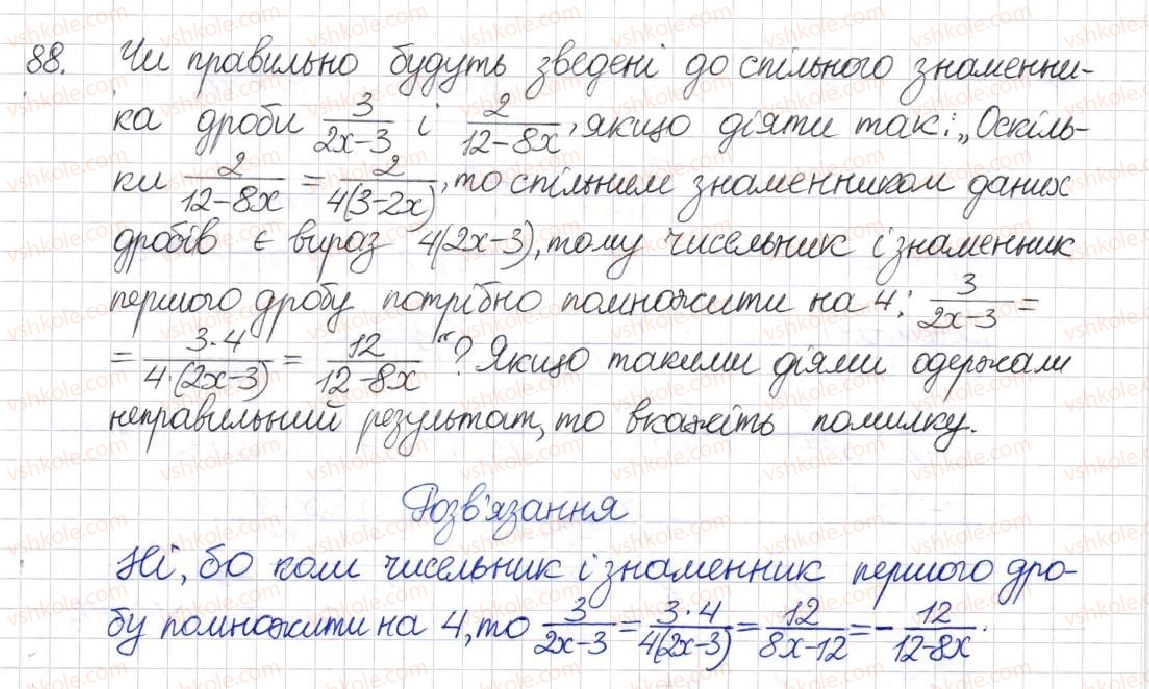 88. Чи правильно будуть зведені до спільного знаменни-
ка дроби 3/(2x-3) і 2/(12-8x), якщо діяти так: „Оскіль-
ки 2/(12-8x) = 2/(4(3-2x)), то спільним знаменником даних
дробів є вираз 4(2x-3), тому чисельник і знаменник
першого дробу потрібно помножити на 4: 3/(2x-3) =
= (3·4)/(4·(2x-3)) = 12/(12-8x)“? Якщо такими діями одержали
неправильний результат, то вкажіть помилку.
Розв'язання
Ні, бо коли чисельник і знаменник першого дро-
бу помножити на 4, то 3/(2x-3) = (3·4)/(4(2x-3)) = 12/(8x-12) = -12/(12-8x).
vshkole.com